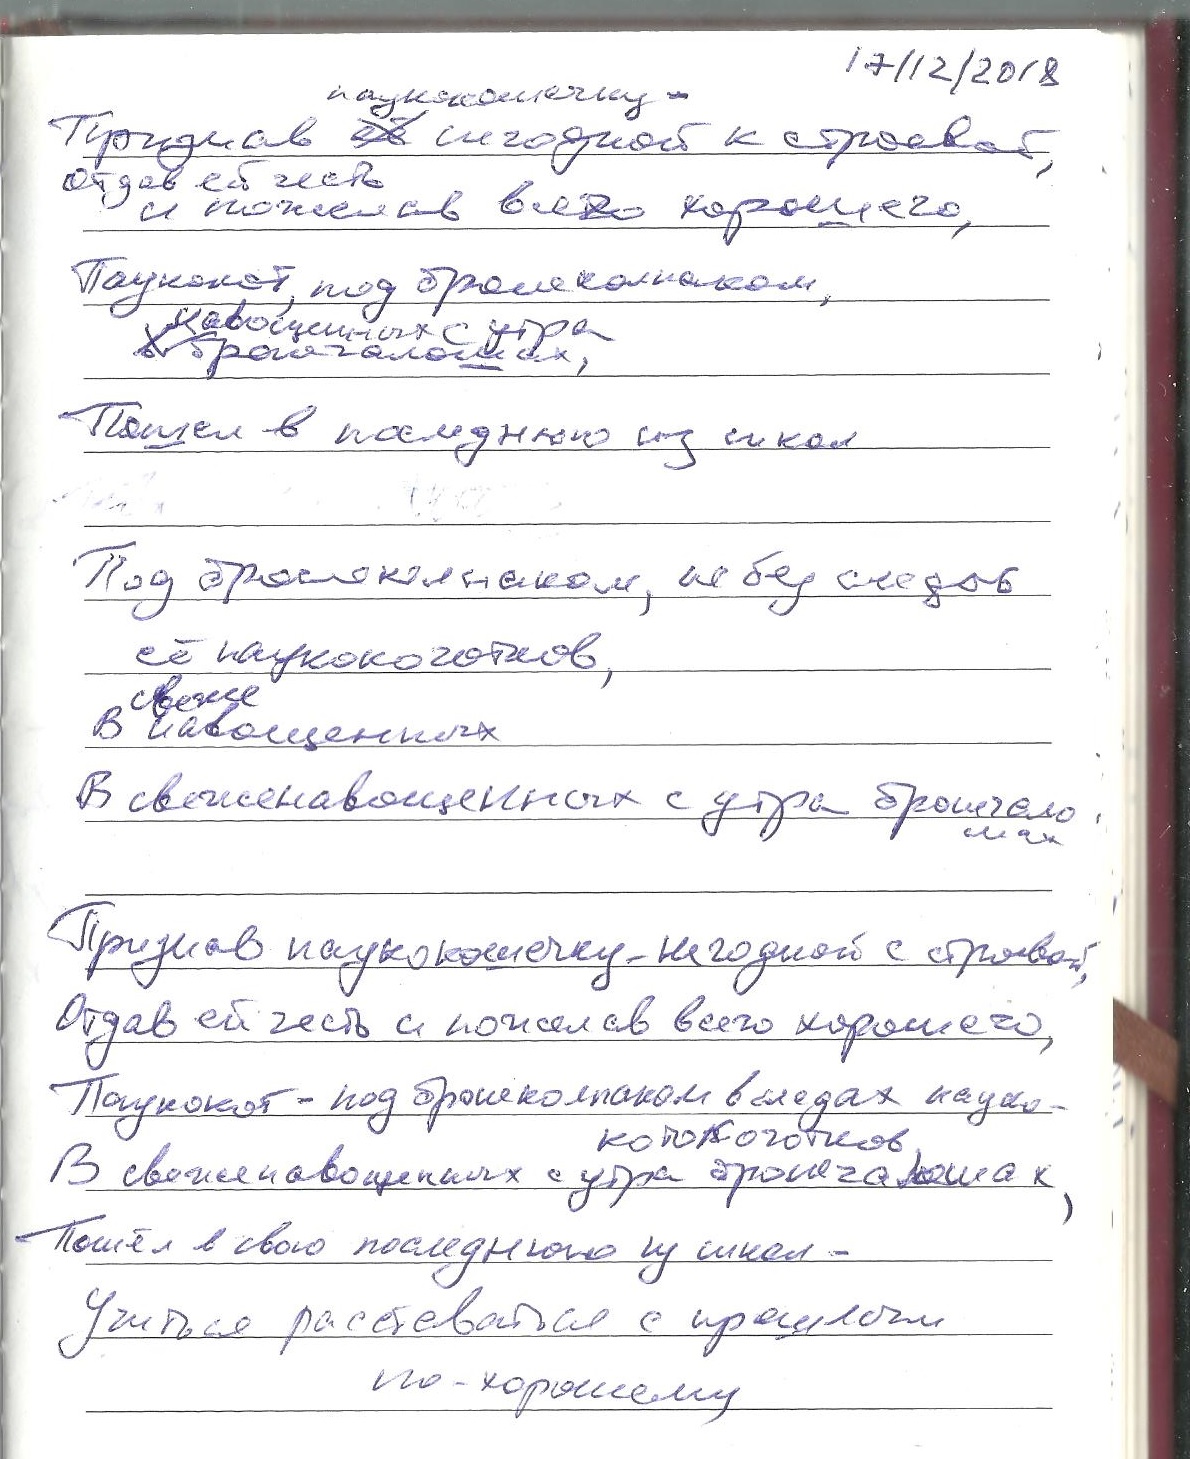 17/12/2018
паукокошечку -
Признав её негодной к строевой,
Отдав ей честь
и пожелав всего хорошего,
Паукокот, под бронеколпаком,
навощенных с утра
в бронечалошах,
Пошел в последнюю из школ
Под бронеколпаком, не без следов
её паукокоготков,
свеже
В навощенных
В свеженавощенных с утра бронечало
шах
Признав паукокошечку - негодной с строевой,
Отдав ей честь и пожелав всего хорошего,
Паукокот - под бронеколпаком в следах пауко-
котокоготков,
В свеженавощенных с утра бронечалошах,
Пошёл в свою последнюю из школ -
Учиться расставаться с прошлым
по-хорошему